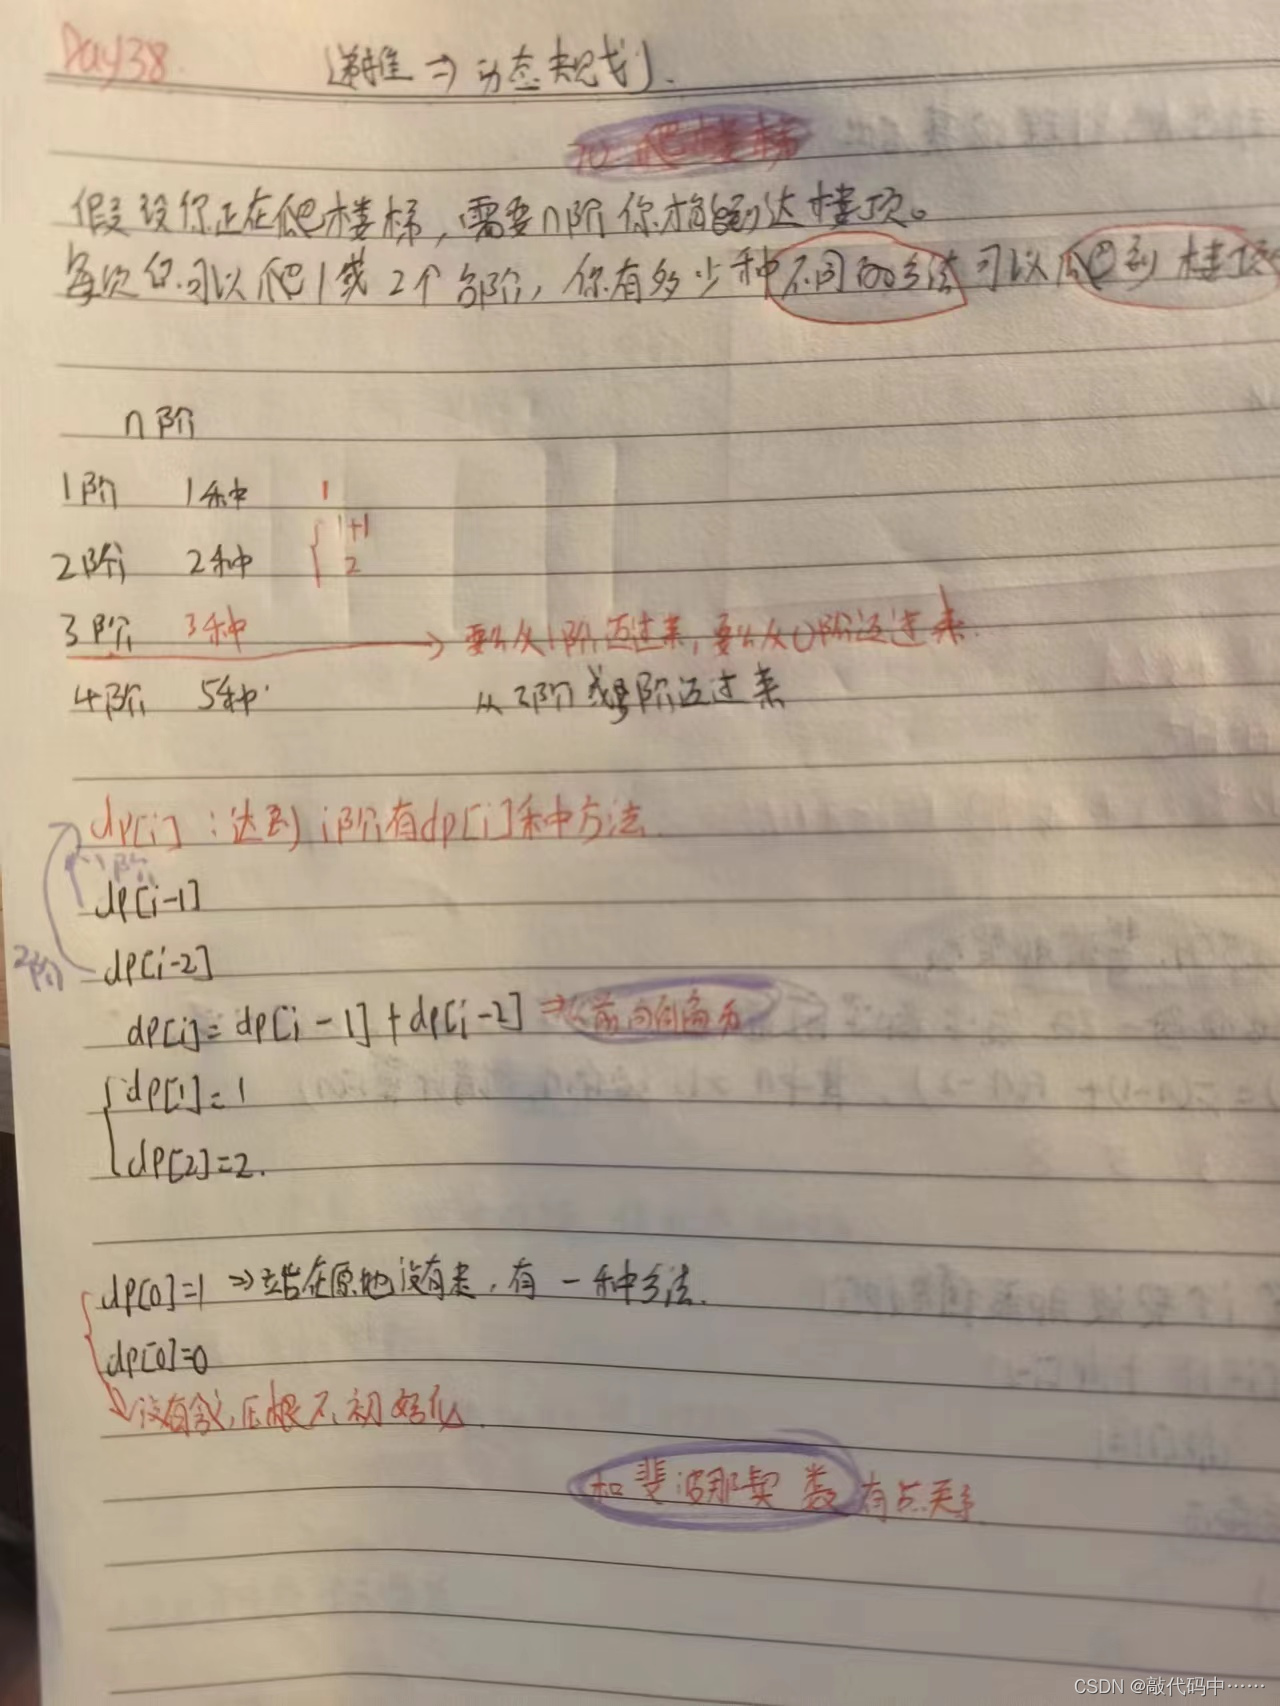 Day38
递推 ⇒ 动态规划.
70. 爬楼梯
假设你正在爬楼梯,需要n阶你才能到达楼顶。
每次你可以爬1或2个台阶,你有多少种不同的方法可以爬到楼顶
n阶
1阶 1种 1
2阶 2种 { 1+1
2
3阶 3种 → 要么从1阶迈过来,要么从0阶迈过来.
4阶 5种 从2阶或3阶迈过来
dp[i]:达到i阶有dp[i]种方法.
1阶
dp[i-1]
2阶 dp[i-2]
dp[i]=dp[i-1]+dp[i-2] ⇒从前向后
{dp[1]=1
dp[2]=2.
dp[0]=1 ⇒站在原地没有走,有一种方法.
dp[0]=0
↘没有含义,压根不初始化.
和斐波那契数有点关系
CSDN @敲代码中……